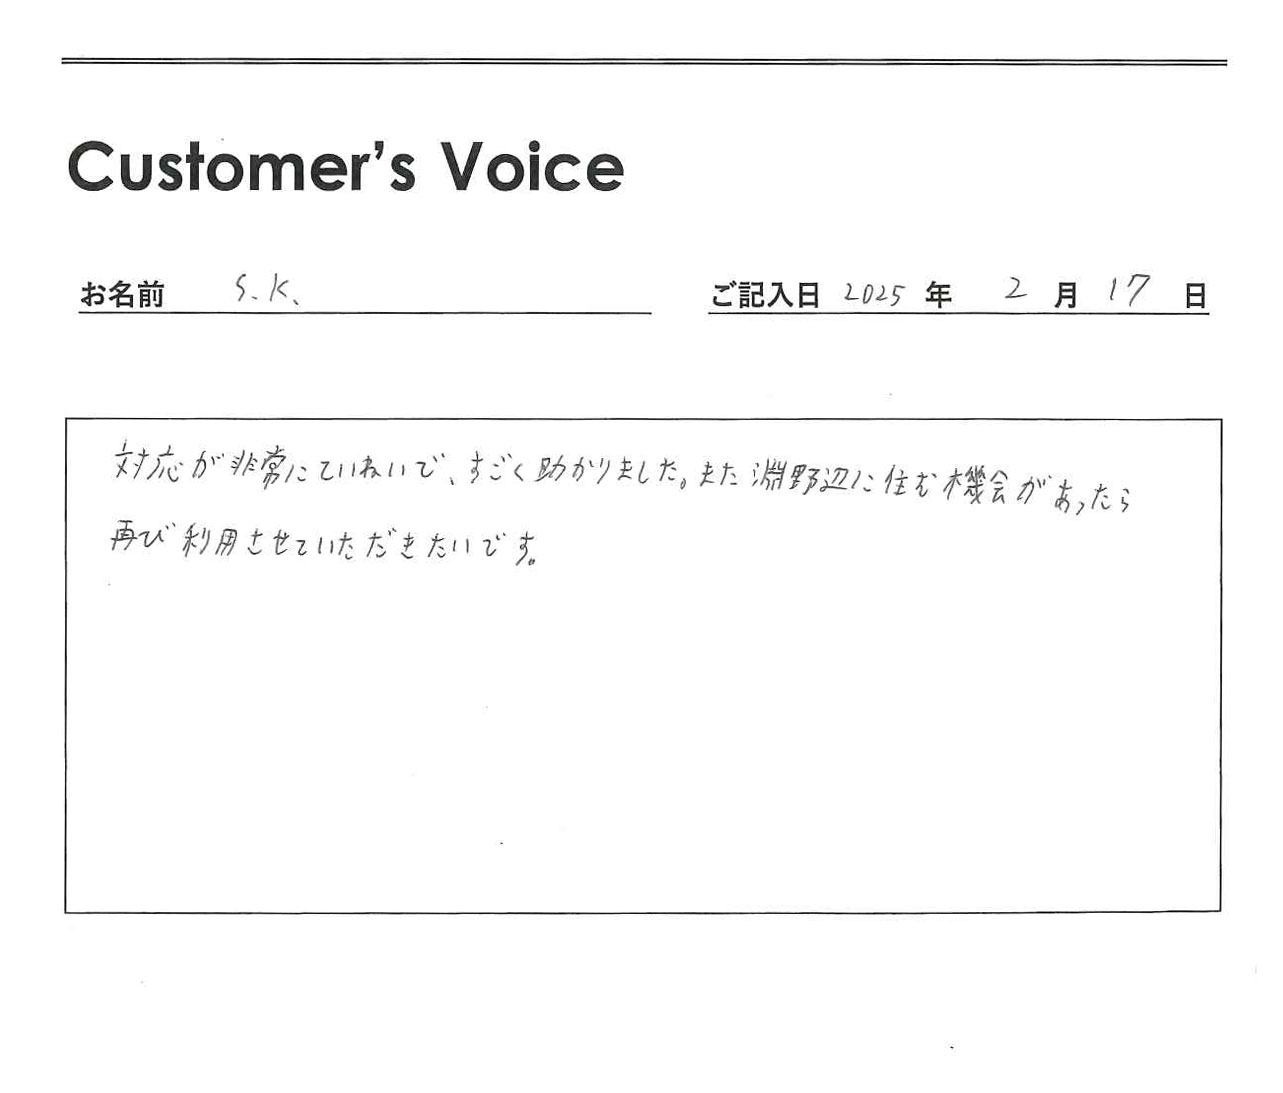 Customer's Voice
お名前 S.K. ご記入日 2025 年 2 月 17 日
対応が非常にていねいで、すごく助かりました。また淵野辺に住む機会があったら
再び利用させていただきたいです。